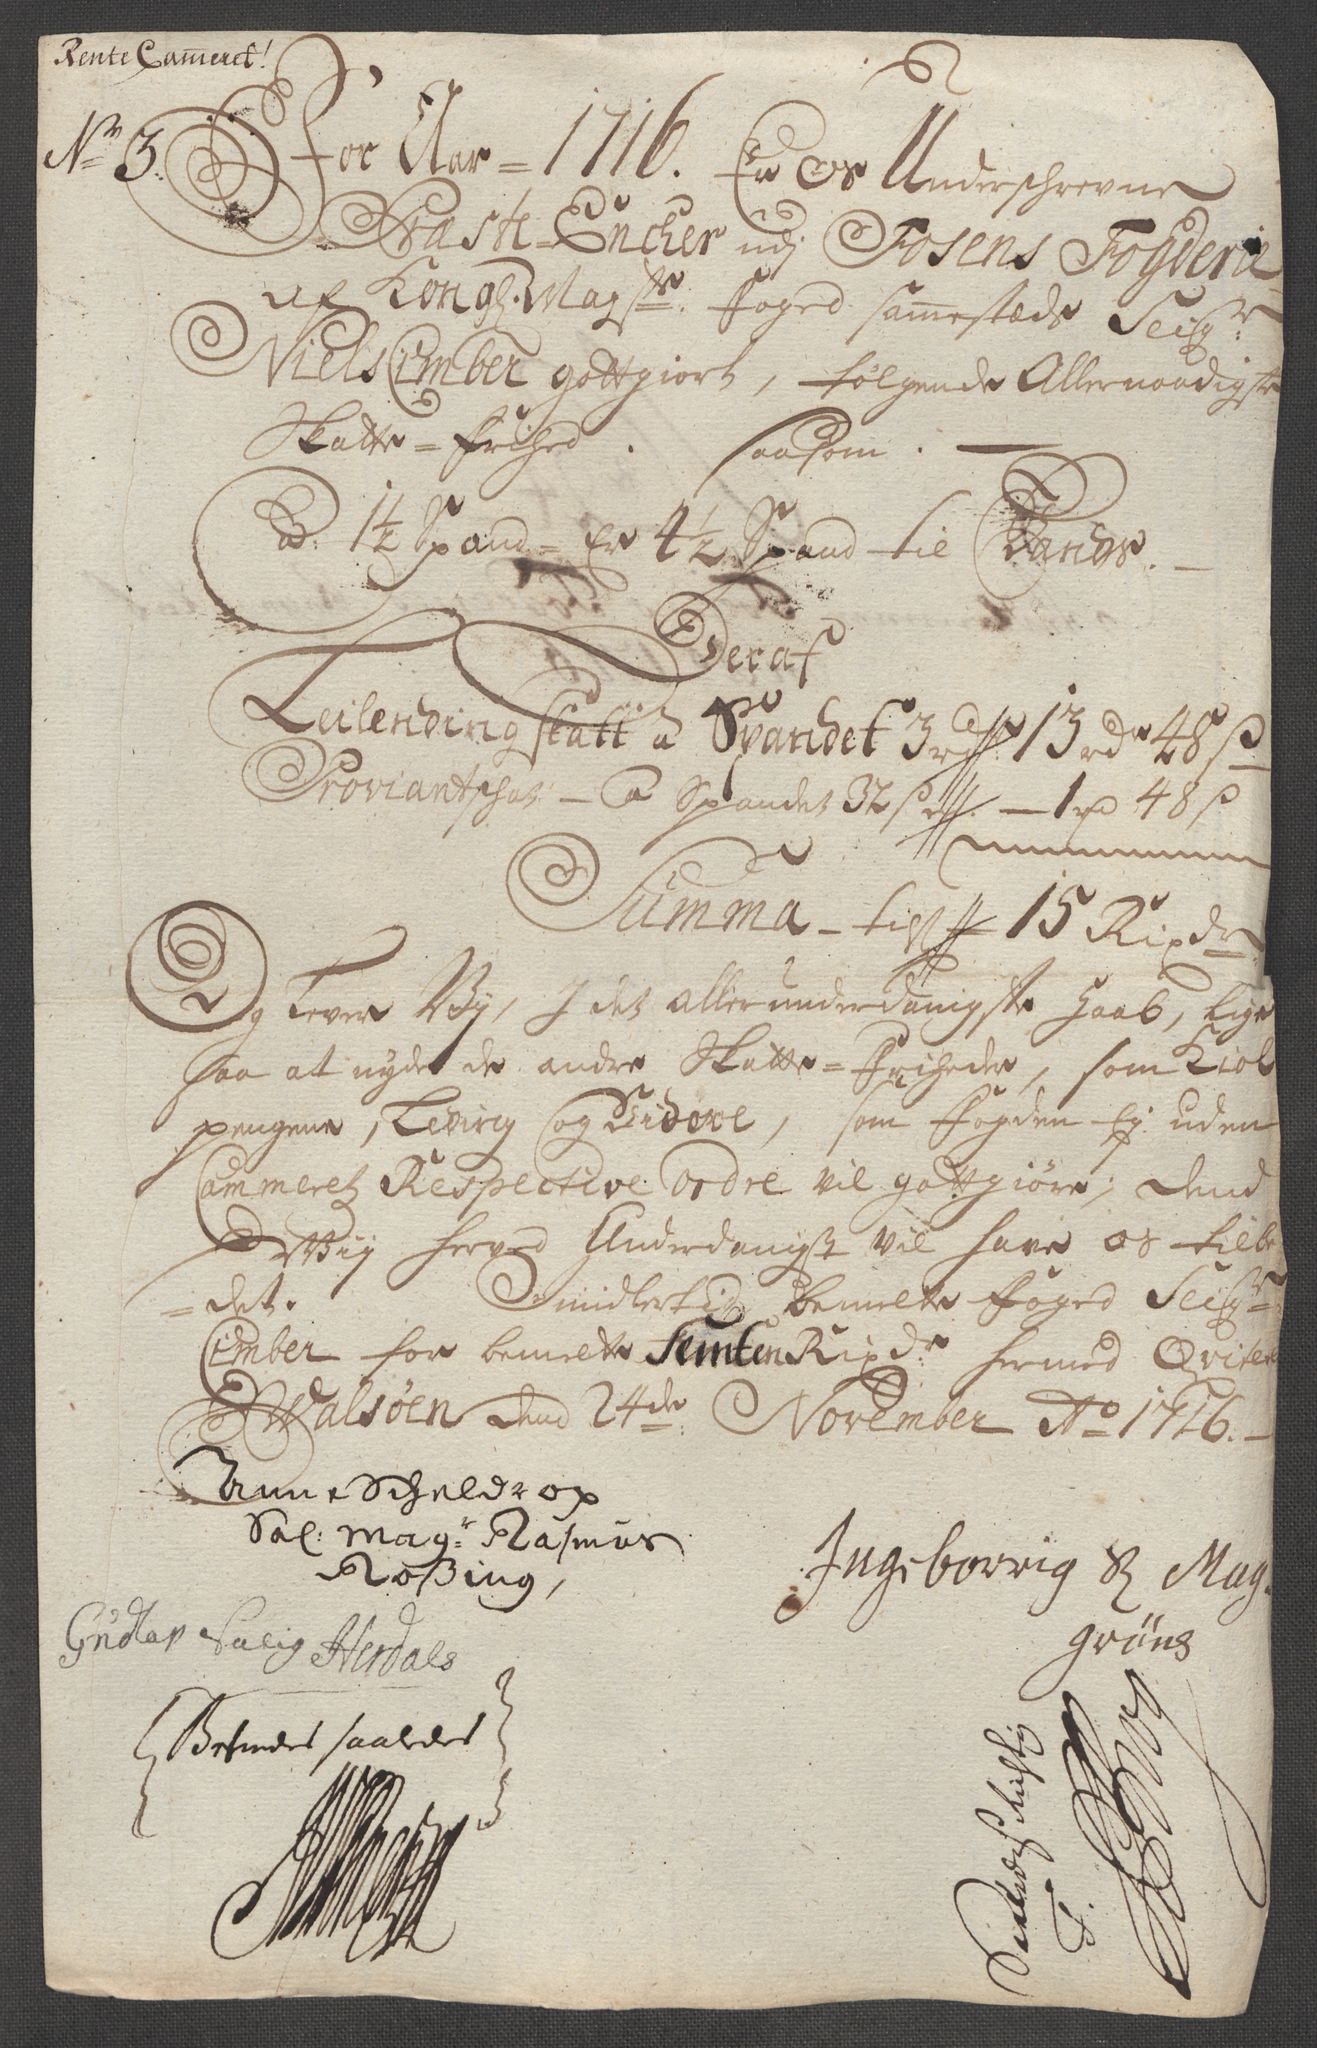 Rente Cammeret!
No 3.
For Aar = 1716. Er os Underschrevne
Præste = Encher udj Fosens Fogderie
af Kongl. Mayts. Foged sammestæds Seigr
Niels Cimber gottgiort, følgende Allernaadigste
Skatte = Frihed. saasom.
a. 1½ Spand = Er 4½ Spand til Trands.
Deraf
Leilending skatt a Spandet 3 rdr 13 rdr 48 s
Proviantschat - a Spandet 32 s 1 rd 48 s
Summa - til 15 Rixdr
Og lever Wij, I det allerunderdanigste Haab, lige
saa at nyde de andre Skatte = Friheder, som Kiol
pengene, Leding og Vidøre, som Fogden ej uden
Cammeretz Respective Ordre vil gottgiøre, dend
Wij herved Underdanigst vil have os tilbe
= det. Imidlertid bemelte Foged Seigr
Cimber for bemelte Femten Rixdr hermed Qvitere
Walsøen dend 24de November Ao 1716.
Anne Scheldrop
Sal: Magr Rasmus
Roßing,
Ingeborrig S Mag.
Grøns
Gudlav Salig Herdals
Befindes saaledes